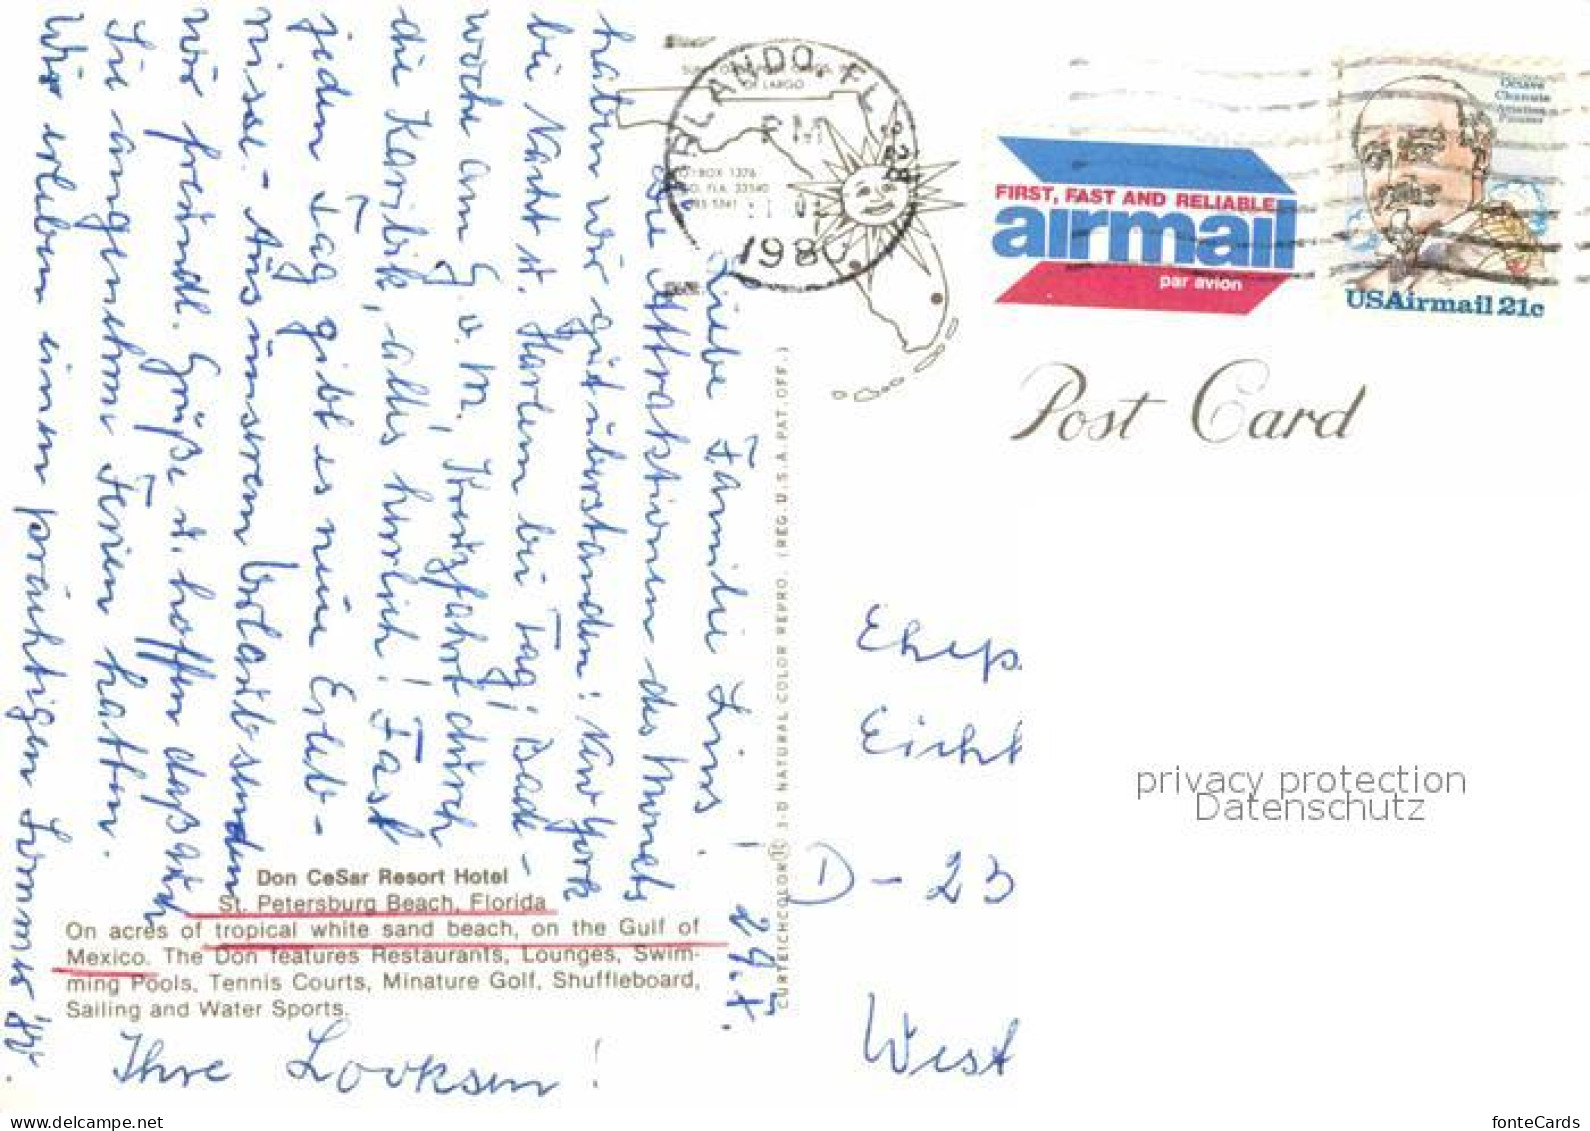 Liebe Familie Lins! 29.X.
Die Attraktionen des Monats
hatten wir gut überstanden: New York
bei Nacht u. Harlem bei Tag; Bade-
woche am G. v. M., Kreuzfahrt durch
die Karibik, alles herrlich! Fast
jeden Tag gibt es neue Erleb-
nisse. - Aus unserem Urlaub senden
wir freundl. Grüße u. hoffen daß auch
Sie angenehme Ferien hatten.
Wir erleben einen prächtigen Sommer
Ihre !
Don CeSar Resort Hotel
St. Petersburg Beach, Florida
On acres of tropical white sand beach, on the Gulf of
Mexico. The Don features Restaurants, Lounges, Swim-
ming Pools, Tennis Courts, Minature Golf, Shuffleboard,
Sailing and Water Sports.
CURTEICHCOLOR® 3-D NATURAL COLOR REPRO. (REG. U.S.A. PAT. OFF.)
ORLANDO, FL
PM
198
OF LARGO
BOX 1376
FLA. 33540
FIRST, FAST AND RELIABLE
airmail
par avion
Octave
Chanute
Aviation
Pioneer
USAirmail 21c
Post Card
Ehep
Eichh
D-23
West
privacy protection
Datenschutz
www.delcampe.net
fonteCards